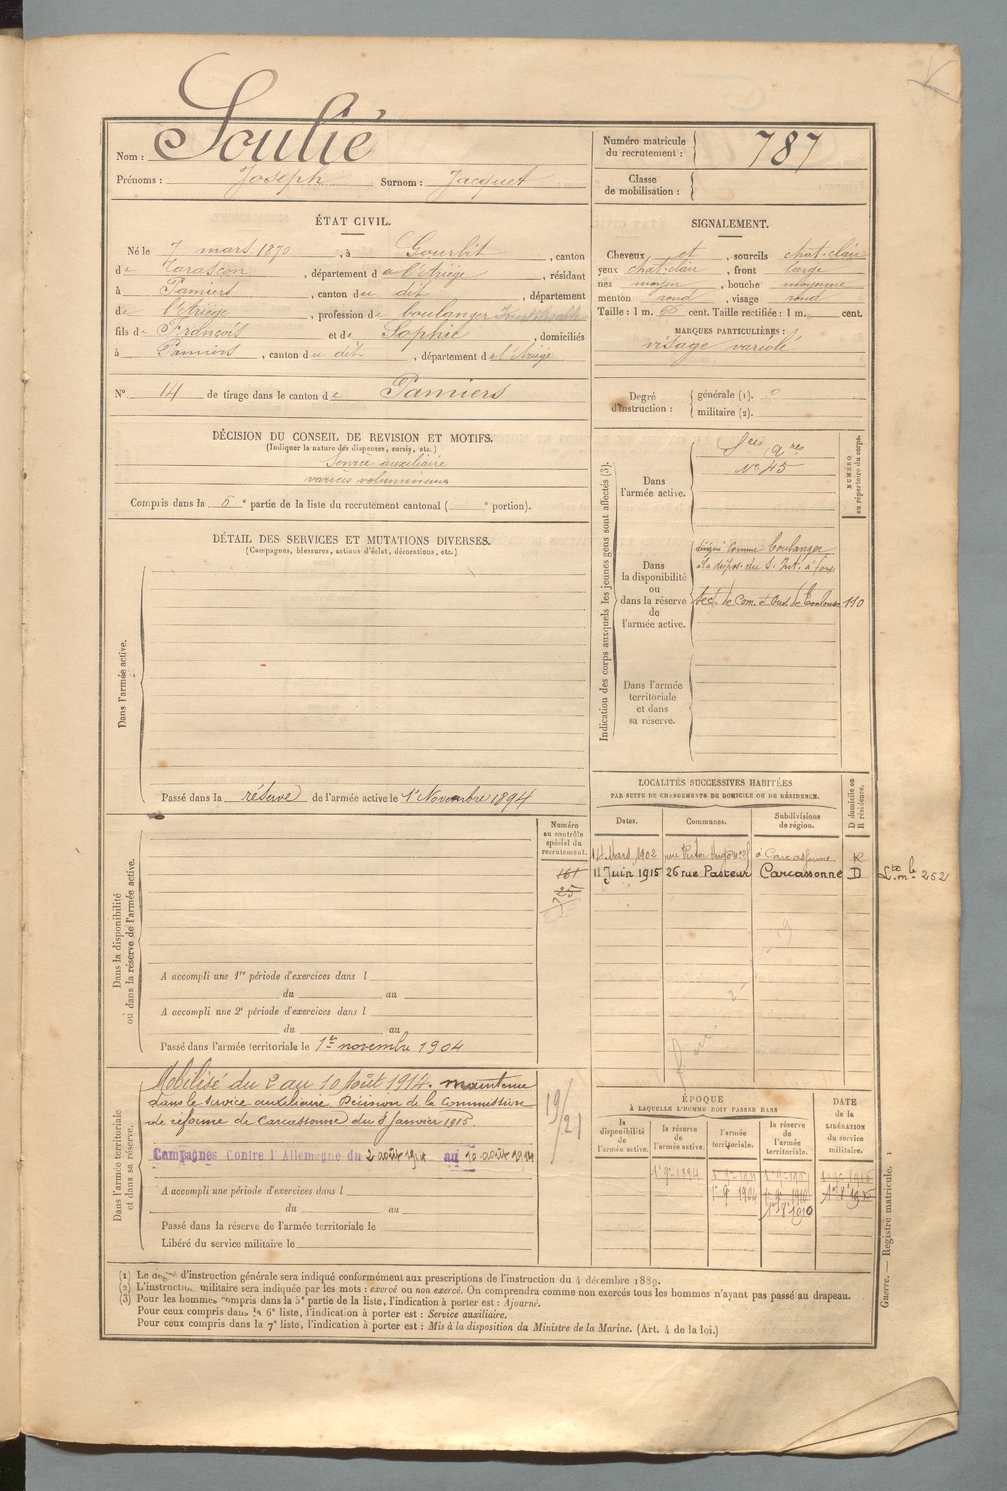 Nom : Soulié
Prénoms : Joseph Surnom : Jacquet
Numéro matricule du recrutement : 787
Classe de mobilisation :
ÉTAT CIVIL.
Né le 7 mars 1870, à Gourbit, canton
de Tarascon, département de l'Ariège, résidant
à Pamiers, canton du dit, département
de l'Ariège, profession de boulanger
fils de François et de Sophie, domiciliés
à Pamiers, canton du dit, département de l'Ariège
N° 14 de tirage dans le canton de Pamiers
SIGNALEMENT.
Cheveux et, sourcils chat-clair
yeux chat-clair, front large
nez moyen, bouche moyenne
menton rond, visage rond
Taille : 1 m. 66 cent. Taille rectifiée : 1 m. cent.
MARQUES PARTICULIÈRES :
visage variolé
Degré d'instruction : générale (1).
militaire (2).
DÉCISION DU CONSEIL DE REVISION ET MOTIFS.
(Indiquer la nature des dispenses, sursis, etc.)
Service auxiliaire
varices volumineuses
Compris dans la 6e partie de la liste du recrutement cantonal ( e portion).
DÉTAIL DES SERVICES ET MUTATIONS DIVERSES.
(Campagnes, blessures, actions d'éclat, décorations, etc.)
Dans l'armée active.
Passé dans la réserve de l'armée active le 1er Novembre 1894
Indication des corps auxquels les jeunes gens sont affectés (3).
NUMÉRO au répertoire du corps.
Dans l'armée active.
N° 45
Dans la disponibilité ou dans la réserve de l'armée active.
désigné comme boulanger
à la dispos. du S. Int. à Foix
Sect. de Com. et Ouv. de Toulouse 110
Dans l'armée territoriale et dans sa réserve.
LOCALITÉS SUCCESSIVES HABITÉES
PAR SUITE DE CHANGEMENTS DE DOMICILE OU DE RÉSIDENCE.
Dates. Communes. Subdivisions de région. D domicile ou R résidence.
14 Mars 1902 rue Victor Hugo à Carcassonne R
11 Juin 1915 26 rue Pasteur Carcassonne D
252
Dans la disponibilité ou dans la réserve de l'armée active.
Numéro au contrôle spécial du recrutement.
161
25
A accompli une 1re période d'exercices dans l
du au
A accompli une 2e période d'exercices dans l
du au
Passé dans l'armée territoriale le 1er novembre 1904
Dans l'armée territoriale et dans sa réserve.
Mobilisé du 2 au 10 Août 1914. maintenu
dans le service auxiliaire. Décision de la Commission
de réforme de Carcassonne du 8 Janvier 1915.
Campagnes Contre l'Allemagne du 2 août 1914 au 10 août 1914
19/21
A accompli une période d'exercices dans l
du au
Passé dans la réserve de l'armée territoriale le
Libéré du service militaire le
ÉPOQUE
À LAQUELLE L'HOMME DOIT PASSER DANS
la disponibilité de l'armée active. la réserve de l'armée active. l'armée territoriale. la réserve de l'armée territoriale. DATE de la LIBÉRATION du service militaire.
1er 9 1894
1er 9 1904 1er 9 1910 1er 8 1916
1er 8 1910
(1) Le degré d'instruction générale sera indiqué conformément aux prescriptions de l'instruction du 4 décembre 1889.
(2) L'instruction militaire sera indiquée par les mots : exercé ou non exercé. On comprendra comme non exercés tous les hommes n'ayant pas passé au drapeau.
(3) Pour les hommes compris dans la 5e partie de la liste, l'indication à porter est : Ajourné.
Pour ceux compris dans la 6e liste, l'indication à porter est : Service auxiliaire.
Pour ceux compris dans la 7e liste, l'indication à porter est : Mis à la disposition du Ministre de la Marine. (Art. 4 de la loi.)
Guerre. — Registre matricule. 1